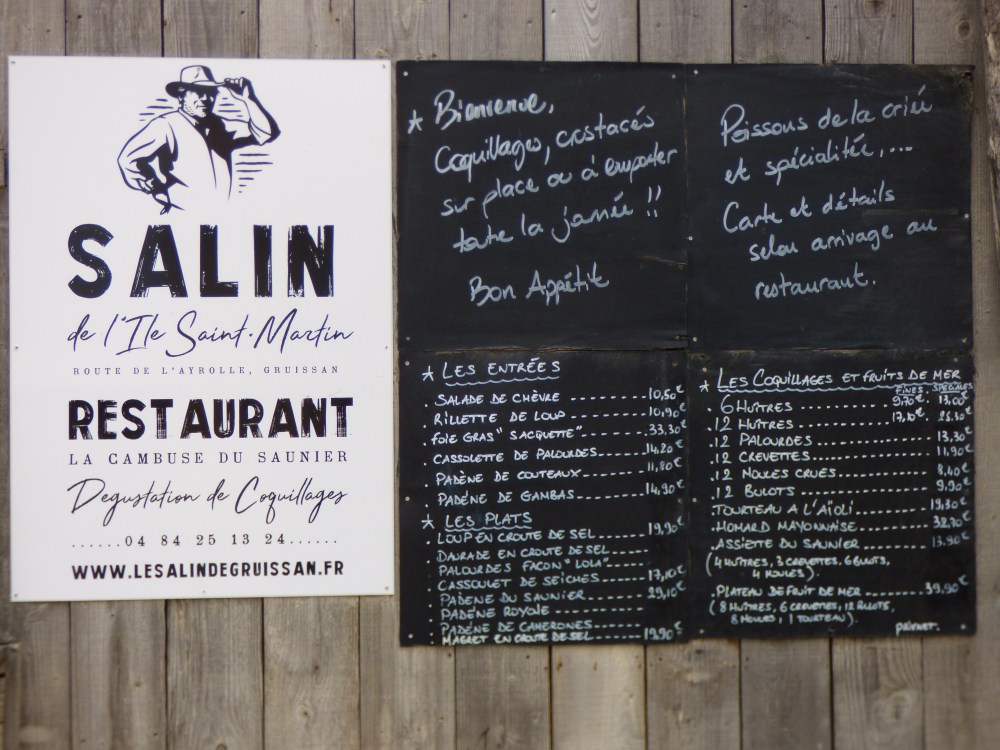 SALIN
de l'Ile Saint-Martin
ROUTE DE L'AYROLLE, GRUISSAN
RESTAURANT
LA CAMBUSE DU SAUNIER
Degustation de Coquillages
......04 84 25 13 24......
WWW.LESALINDEGRUISSAN.FR
* Bienvenue,
Coquillages, crustacés
sur place ou à emporter
toute la journée !!
Bon Appétit
Poissons de la criée
et spécialitée,...
Carte et détails
selon arrivage au
restaurant.
* LES ENTRÉES
. SALADE DE CHÈVRE -------- 10,50€
. RILLETTE DE LOUP -------- 10,90€
. FOIE GRAS "SACQUETTE" ------ 33,30€
. CASSOLETTE DE PALOURDES ------ 14,20€
. PADÈNE DE COUTEAUX ------ 11,80€
. PADÈNE DE GAMBAS ------ 14,90€
* LES PLATS
. LOUP EN CROUTE DE SEL ------ 19,90€
. DAURADE EN CROUTE DE SEL ------
. PALOURDES FACON "LOLA" ------
. CASSOULET DE SEICHES ------ 17,10€
. PADENE DU SAUNIER ------ 29,10€
. PADÈNE ROYALE ------
. PADÈNE DE CAMERONES ------
. MAGRET EN CROUTE DE SEL ------ 19,90€
* LES COQUILLAGES ET FRUITS DE MER
FINES SPÉCIALES
. 6 HUÎTRES -------- 9,70€ . 13,00€
. 12 HUÎTRES -------- 17,10€ 25.30€
. 12 PALOURDES -------- 13,30€
. 12 CREVETTES -------- 11,90€
. 12 MOULES CRUES -------- 8,40€
. 12 BULOTS -------- 9,90€
. TOURTEAU A L'AÏOLI -------- 19,30€
. HOMARD MAYONNAISE -------- 32,70€
. ASSIETTE DU SAUNIER -------- 13.90€
(4 HUÎTRES, 3 CREVETTES, 6 BULOTS,
4 MOULES).
. PLATEAU DE FRUIT DE MER -------- 39,90€
(8 HUÎTRES, 6 CREVETTES, 12 BULOTS,
8 MOULES, 1 TOURTEAU).
prix net.